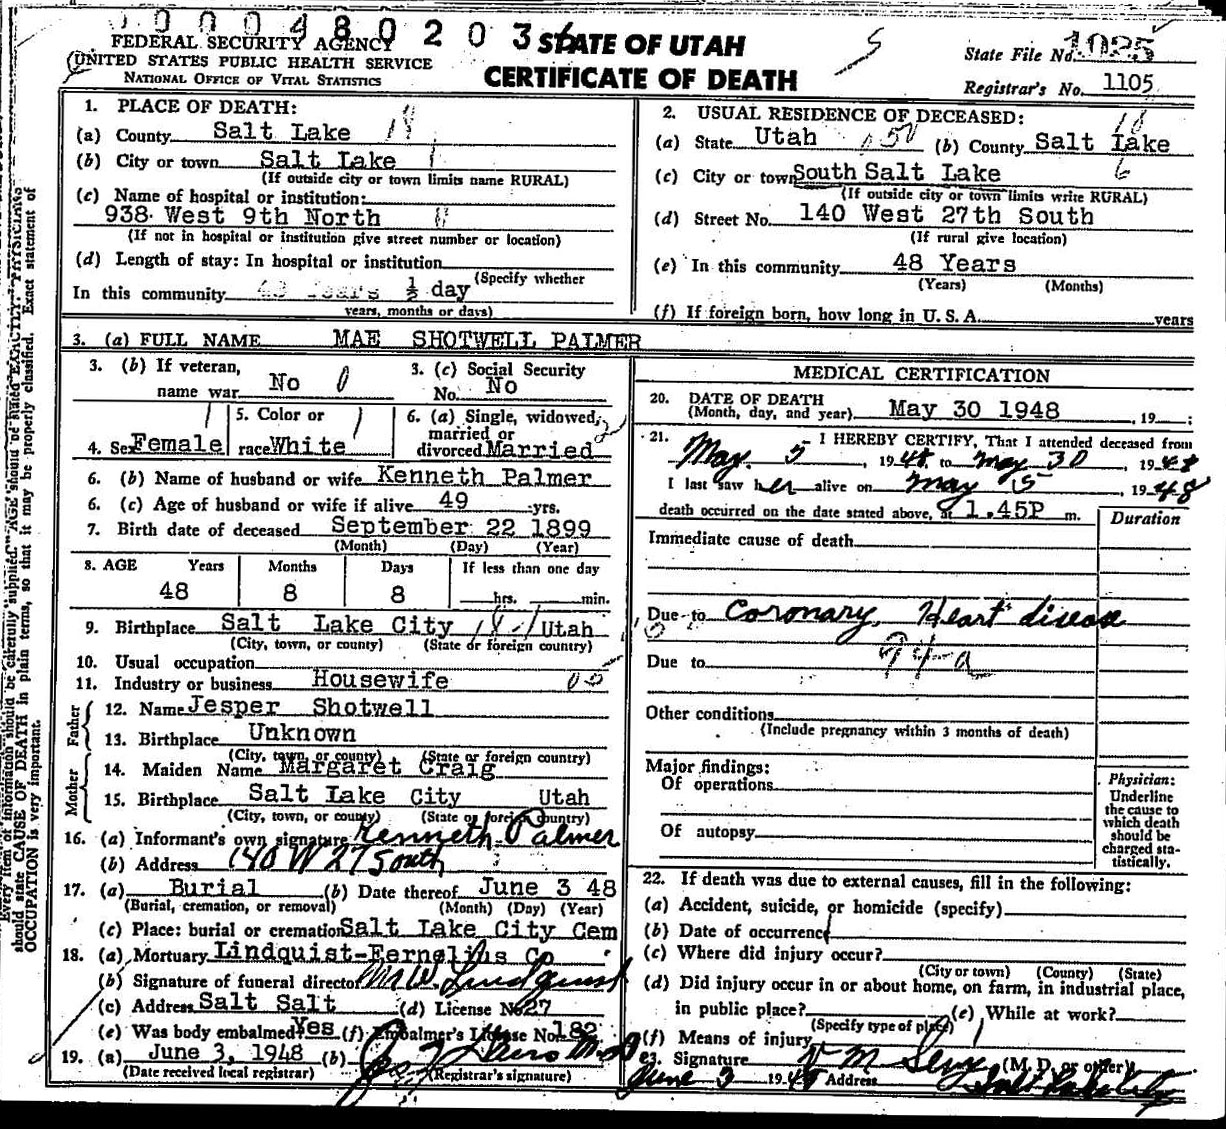 0000480203
STATE OF UTAH
CERTIFICATE OF DEATH
FEDERAL SECURITY AGENCY
UNITED STATES PUBLIC HEALTH SERVICE
NATIONAL OFFICE OF VITAL STATISTICS
State File No. 1025
Registrar's No. 1105
1. PLACE OF DEATH:
(a) County Salt Lake 18
(b) City or town Salt Lake 1
(If outside city or town limits name RURAL)
(c) Name of hospital or institution:
938 West 9th North
(If not in hospital or institution give street number or location)
(d) Length of stay: In hospital or institution
(Specify whether
In this community 48 Years ½ day
years, months or days)
2. USUAL RESIDENCE OF DECEASED:
(a) State Utah (b) County Salt Lake
(c) City or town South Salt Lake 6
(If outside city or town limits write RURAL)
(d) Street No. 140 West 27th South
(If rural give location)
(e) In this community 48 Years
(Years) (Months)
(f) If foreign born, how long in U. S. A. years
3. (a) FULL NAME MAE SHOTWELL PALMER
3. (b) If veteran,
name war No 0
3. (c) Social Security
No. No
4. Sex Female
5. Color or
race White
6. (a) Single, widowed,
married or
divorced Married
6. (b) Name of husband or wife Kenneth Palmer
6. (c) Age of husband or wife if alive 49 yrs.
7. Birth date of deceased September 22 1899
(Month) (Day) (Year)
8. AGE Years Months Days If less than one day
48 8 8 hrs. min.
9. Birthplace Salt Lake City Utah
(City, town, or county) (State or foreign country)
10. Usual occupation
11. Industry or business Housewife
Father
12. Name Jesper Shotwell
13. Birthplace Unknown
(City, town, or county) (State or foreign country)
Mother
14. Maiden Name Margaret Craig
15. Birthplace Salt Lake City Utah
(City, town, or county) (State or foreign country)
16. (a) Informant's own signature Kenneth Palmer
(b) Address 140 W 27 South
17. (a) Burial (b) Date thereof June 3 48
(Burial, cremation, or removal) (Month) (Day) (Year)
(c) Place: burial or cremation Salt Lake City Cem
18. (a) Mortuary Lindquist-Fernelius Co
(b) Signature of funeral director M W. Lindquist
(c) Address Salt Salt (d) License No 27
(e) Was body embalmed? Yes (f) Embalmer's License No. 182
19. (a) June 3, 1948 (b)
(Date received local registrar) (Registrar's signature)
MEDICAL CERTIFICATION
20. DATE OF DEATH
(Month, day, and year) May 30 1948, 19 :
21. I HEREBY CERTIFY, That I attended deceased from
May 5, 1948 to May 30, 1948
I last saw her alive on May 5, 1948
death occurred on the date stated above, at 1.45P m.
Duration
Immediate cause of death
Due to Coronary Heart disease
Due to 94-a
Other conditions
(Include pregnancy within 3 months of death)
Major findings:
Of operations
Of autopsy
Physician:
Underline
the cause to
which death
should be
charged sta-
tistically.
22. If death was due to external causes, fill in the following:
(a) Accident, suicide, or homicide (specify)
(b) Date of occurrence
(c) Where did injury occur?
(City or town) (County) (State)
(d) Did injury occur in or about home, on farm, in industrial place,
in public place? (e) While at work?
(Specify type of place)
(f) Means of injury
23. Signature (M. D. or other)
June 3 1948 Address Salt Lake City
Every item of information should be carefully supplied. AGE should be stated EXACTLY. PHYSICIANS
should state CAUSE OF DEATH in plain terms, so that it may be properly classified. Exact statement of
OCCUPATION is very important.